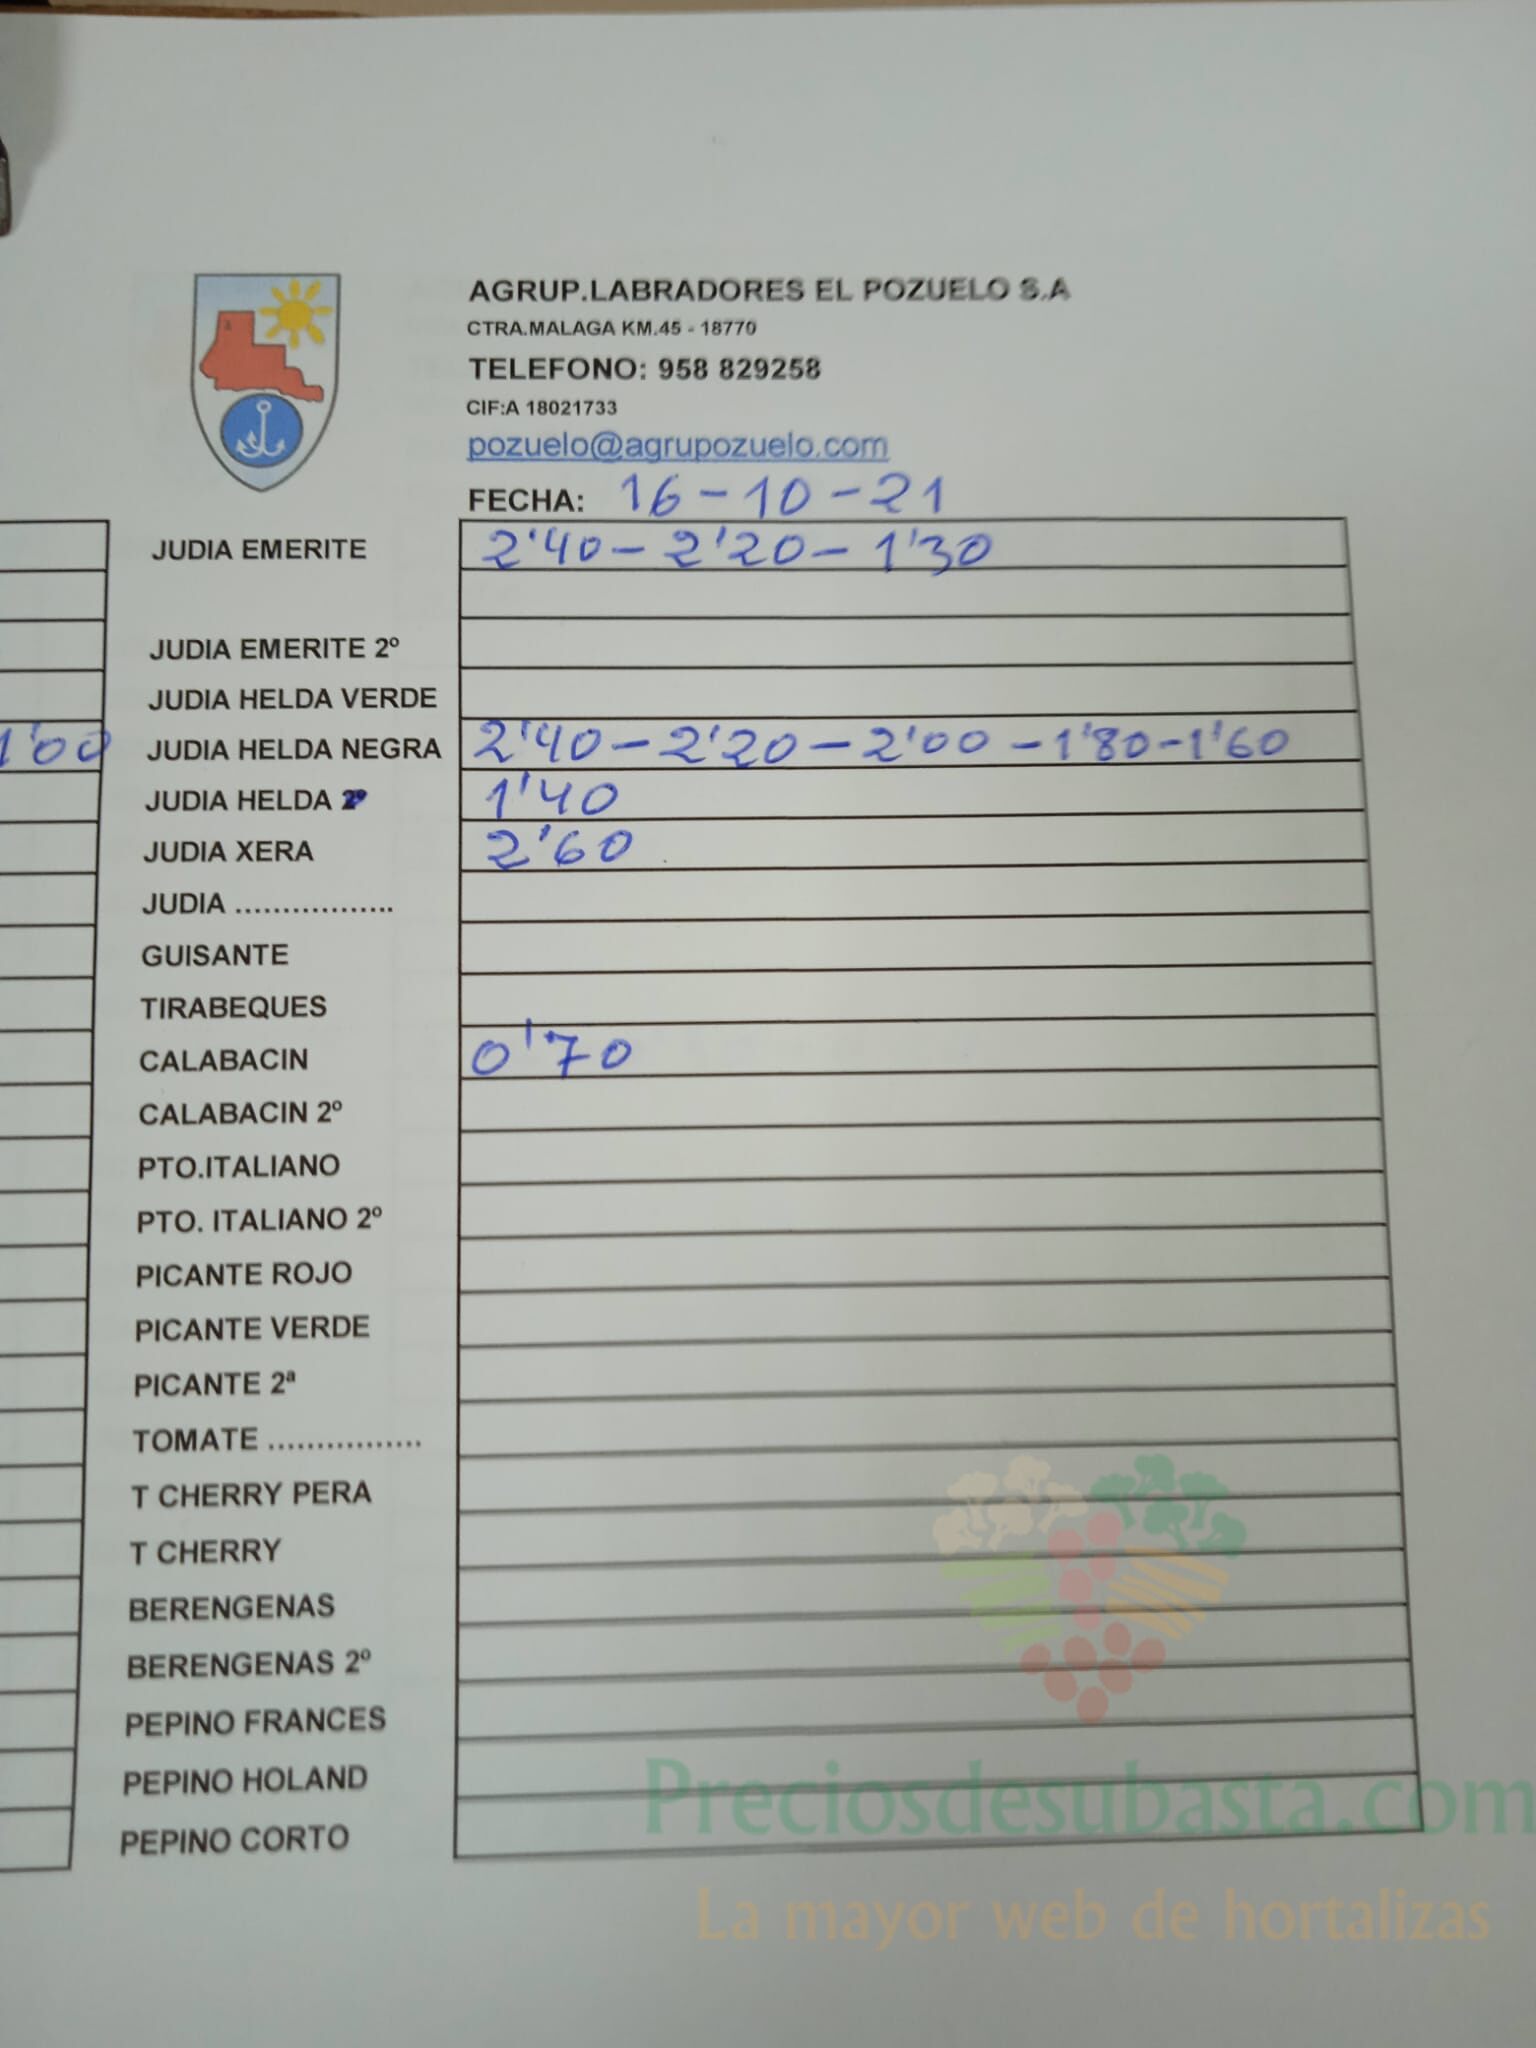 AGRUP.LABRADORES EL POZUELO S.A
CTRA.MALAGA KM.45 - 18770
TELEFONO: 958 829258
CIF:A 18021733
pozuelo@agrupozuelo.com
FECHA: 16-10-21
JUDIA EMERITE 2'40-2'20-1'30
JUDIA EMERITE 2º
JUDIA HELDA VERDE
1'00 JUDIA HELDA NEGRA 2'40-2'20-2'00-1'80-1'60
JUDIA HELDA 2º 1'40
JUDIA XERA 2'60
JUDIA .................
GUISANTE
TIRABEQUES
CALABACIN 0'70
CALABACIN 2º
PTO.ITALIANO
PTO. ITALIANO 2º
PICANTE ROJO
PICANTE VERDE
PICANTE 2ª
TOMATE ................
T CHERRY PERA
T CHERRY
BERENGENAS
BERENGENAS 2º
PEPINO FRANCES
PEPINO HOLAND
PEPINO CORTO
Preciosdesubasta.com
La mayor web de hortalizas